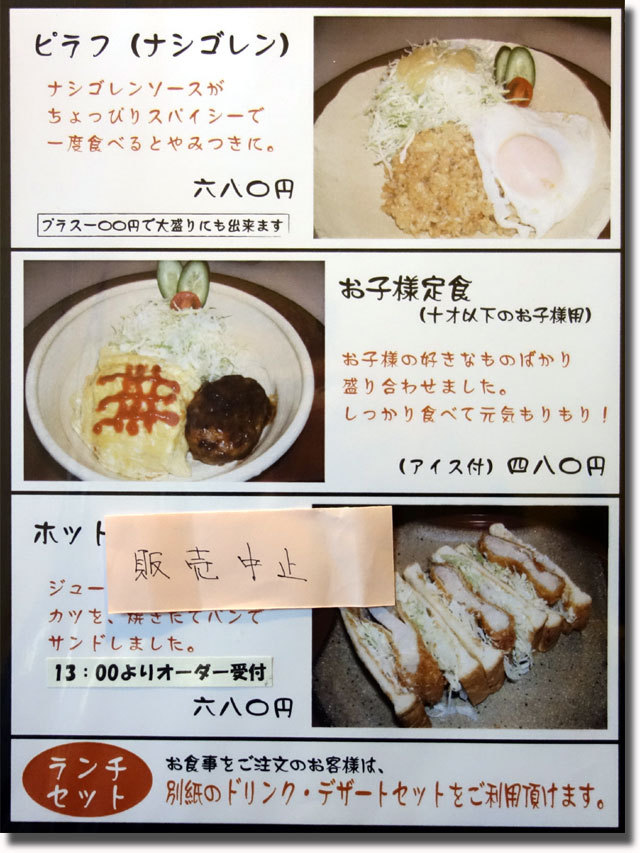 ピラフ（ナシゴレン）
ナシゴレンソースが
ちょっぴりスパイシーで
一度食べるとやみつきに。
六八〇円
プラス一〇〇円で大盛りにも出来ます
お子様定食
（十才以下のお子様用）
お子様の好きなものばかり
盛り合わせました。
しっかり食べて元気もりもり！
（アイス付）四八〇円
ホット
販売中止
ジュー
カツを、焼きたてパンで
サンドしました。
13：00よりオーダー受付
六八〇円
ランチ
セット
お食事をご注文のお客様は、
別紙のドリンク・デザートセットをご利用頂けます。